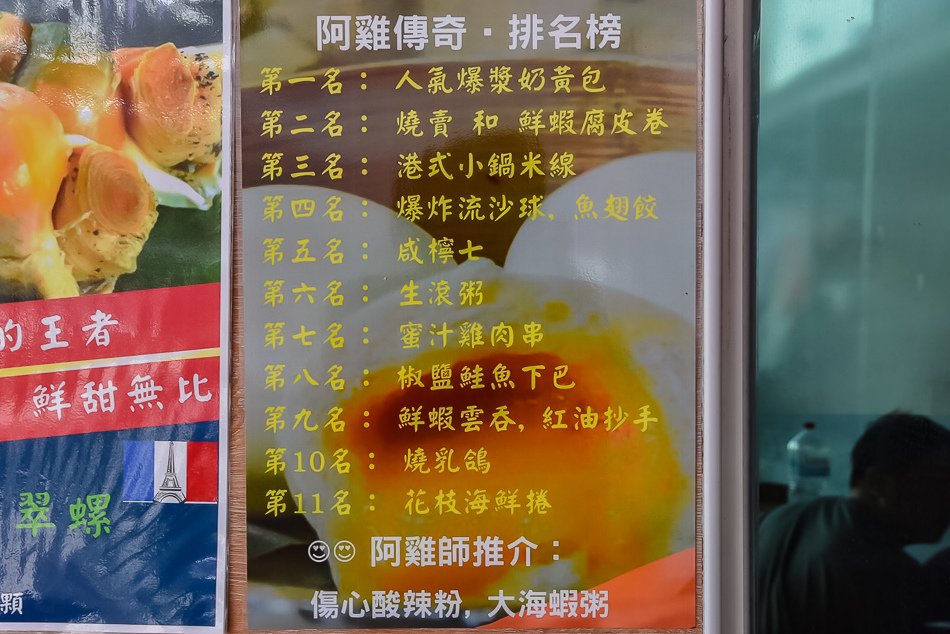 阿雞傳奇·排名榜
第一名： 人氣爆漿奶黃包
第二名： 燒賣 和 鮮蝦腐皮卷
第三名： 港式小鍋米線
第四名： 爆炸流沙球, 魚翅餃
第五名： 咸檸七
第六名： 生滾粥
第七名： 蜜汁雞肉串
第八名： 椒鹽鮭魚下巴
第九名： 鮮蝦雲吞, 紅油抄手
第10名： 燒乳鴿
第11名： 花枝海鮮捲
😍😍 阿雞師推介：
傷心酸辣粉, 大海蝦粥
的王者
鮮甜無比
翠螺
顆